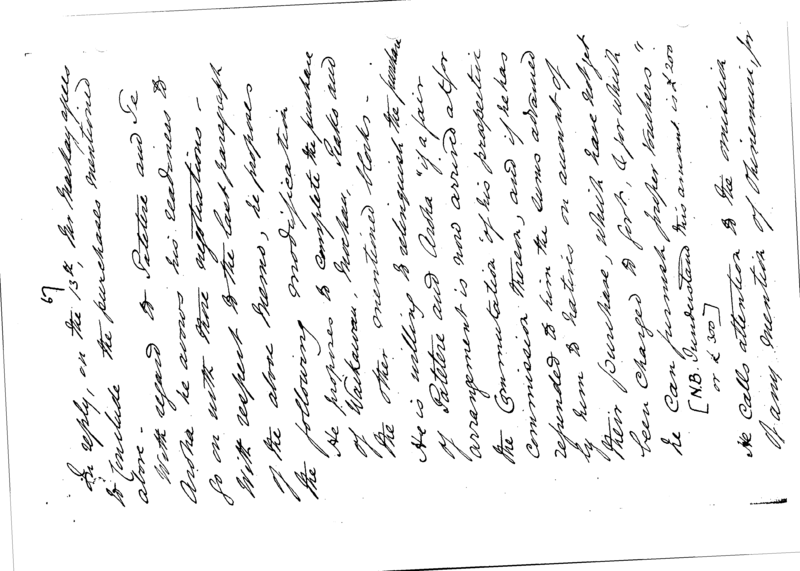 67
In reply, on the 13th, Mr Mackay agrees
to conclude the purchases mentioned
above -
With regard to Patetere and Te
Aroha he avows his readiness to
go on with those negotiations -
With respect to the last paragraph
of the above memo, he proposes
the following modification
He proposes to complete the purchase
of Waikawau, Moehau, and
the other mentioned blocks -
He is willing to relinquish the purchase
of Patetere and Aroha "if a fair
arrangement is now arrived at for
the commutation of his prospective
commission thereon, and if he has
refunded to him the sums advanced
by him to natives on account of
their purchase, which have not yet
been charged to Govt, & for which
he can furnish proper vouchers"
[N.B. I understand this amount is £200
or £300]
He calls attention to the omission
of any mention of Ohinemuri, for